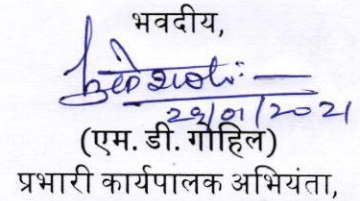 भवदीय,
29/01/2021
(एम. डी. गोहिल)
प्रभारी कार्यपालक अभियंता,